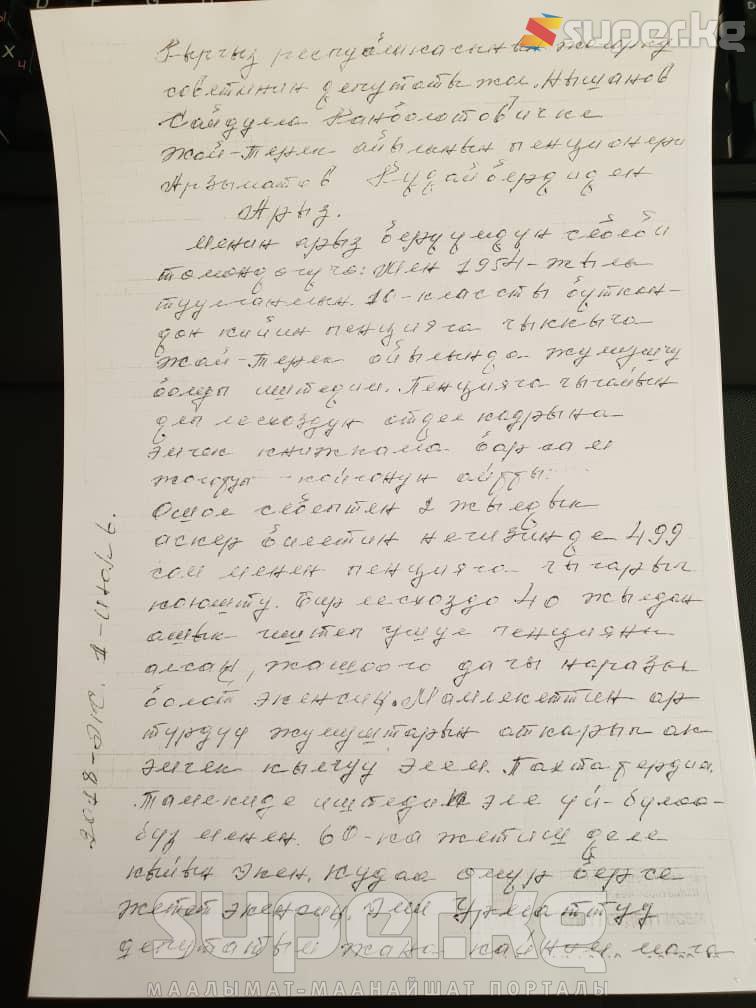 super.kg
Кыргыз республикасынын жогорку
советинин депутаты жол. Нышанов
Сайдулла Канболотовичке
Жай-Терек айылынын пенционери
Арзыматов Кудайбердиден
Арыз.
Менин арыз берүүмдүн себеби
томондогуча: Мен 1954-жылы
туулганмын. 10-классты бүткөн-
дон кийин пенцияга чыккыча
Жай-Терек айылында жумушчу
болуп иштедим. Пенцияга чыгайын
деп лесхоздун отдел кадрына
эмгек книжкама барсам
жоготуп койгонун айтты.
Ошол себептен 2 жылдык
аскер билетин негизинде 499
сом менен пенцияга чыгарып
коюшту. Бир лесхоздо 40 жылдан
ашык иштеп ушул пенцияны
алсаң, жашоого дагы наразы
болот экенсиң. Мамлекеттин ар
түрдүү жумуштарын аткарып ак
эмгек кылчуу элем. Пахта тердим.
Тамекиде иштедик эле үй-бүлөө-
бүз менен. 60-ка жетиш деле
кыйын экен. Кудаа омур берсе
жетет экенсиң. Эми Урматтуу
депутатым жана кайным мага
2018-жыл. 1-июль.
super.kg
МААЛЫМАТ-МААНАЙШАТ ПОРТАЛЫ